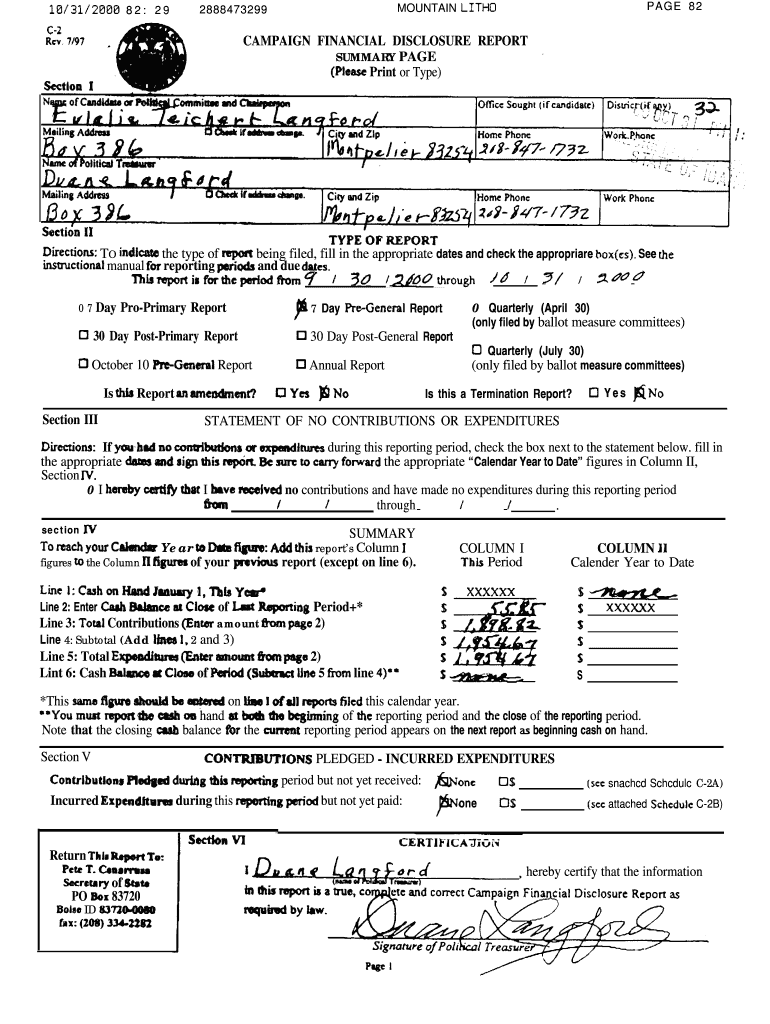 10/31/2000 82: 29 2888473299 MOUNTAIN LITHO PAGE 82
C-2
Rev. 7/97
CAMPAIGN FINANCIAL DISCLOSURE REPORT
SUMMARY PAGE
(Please Print or Type)
Section I
Name of Candidate or Political Committee and Chairperson Office Sought (if candidate) District (if any) 32
Eulalie Teichert Langford
Mailing Address Check if address change. City and Zip Home Phone Work Phone
Box 386 Montpelier 83254 208-847-1732
STATE OF IDA
Name of Political Treasurer
Duane Langford
Mailing Address Check if address change. City and Zip Home Phone Work Phone
Box 386 Montpelier 83254 208-847-1732
Section II
TYPE OF REPORT
Directions: To indicate the type of report being filed, fill in the appropriate dates and check the appropriare box(es). See the
instructional manual for reporting periods and due dates.
This report is for the period from 9 / 30 / 2000 through 10 / 31 / 2000
0 7 Day Pro-Primary Report 7 Day Pre-General Report 0 Quarterly (April 30)
(only filed by ballot measure committees)
30 Day Post-Primary Report 30 Day Post-General Report
Quarterly (July 30)
October 10 Pre-General Report Annual Report (only filed by ballot measure committees)
Is this Report an amendment? Yes No Is this a Termination Report? Yes No
Section III STATEMENT OF NO CONTRIBUTIONS OR EXPENDITURES
Directions: If you had no contributions or expenditures during this reporting period, check the box next to the statement below. fill in
the appropriate dates and sign this report. Be sure to carry forward the appropriate “Calendar Year to Date” figures in Column II,
Section IV.
0 I hereby certify that I have received no contributions and have made no expenditures during this reporting period
from / / through / / .
section IV SUMMARY
To reach your Calendar Year to Date figure: Add this report's Column I COLUMN I COLUMN II
figures to the Column II figures of your previous report (except on line 6). This Period Calender Year to Date
Line 1: Cash on Hand January 1, This Year* $ XXXXXX $ none
Line 2: Enter Cash Balance at Close of Last Reporting Period+* $ 55.85 $ XXXXXX
Line 3: Total Contributions (Enter amount from page 2) $ 1,898.82 $
Line 4: Subtotal (Add lines 1, 2 and 3) $ 1,954.67 $
Line 5: Total Expenditures (Enter amount from page 2) $ 1,954.67 $
Lint 6: Cash Balance at Close of Period (Subtract line 5 from line 4)** $ none $
*This same figure should be entered on line 1 of all reports filed this calendar year.
**You must report the cash on hand at both the beginning of the reporting period and the close of the reporting period.
Note that the closing cash balance for the current reporting period appears on the next report as beginning cash on hand.
Section V CONTRIBUTIONS PLEDGED - INCURRED EXPENDITURES
Contributions Pledged during this reporting period but not yet received: None $ (see snached Schcdulc C-2A)
Incurred Expenditures during this reporting period but not yet paid: None $ (see attached Schedule C-2B)
Section VI CERTIFICATION
Return This Report To:
Pete T. Cenarrusa
Secretary of State
PO Box 83720
Boise ID 83720-0080
fax: (208) 334-2282
I Duane Langford , hereby certify that the information
(name of Political Treasurer)
in this report is a true, complete and correct Campaign Financial Disclosure Report as
required by law.
Duane Langford
Signature of Political Treasurer
Page 1